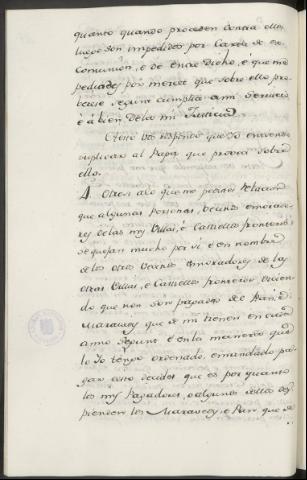 quanto quando proceden contra ellos
luego son impedidos por Carta de es
Comunion, è de Entre Dicho, è que me
pediades por merced que sobre ello pro
beiese segun cumplia a mi Servicio
è à bien de la mi Justicia
A esto vos respondo que Yo entiendo
suplicar al Papa que provea sobre
ello.
A Otrosi alo que me posiste Relacion
que algunas personas, vecinos è morado
res de las mis Villas, è Castillos fronteros
se quejan mucho por si è en nombre
de los otros Vecinos è moradores de las
otras Villas, è Castillos fronteros dicien
do que non son pagados de Pan è
Maravedis que de mi tienen en cada
anno segunt è en la manera que
lo Yo tengo ordenado, è mandado pa
gar esso decides que es por quanto
los mis Pagadores, è algunos dellos des
pienden los Maravedis, è Pan que se